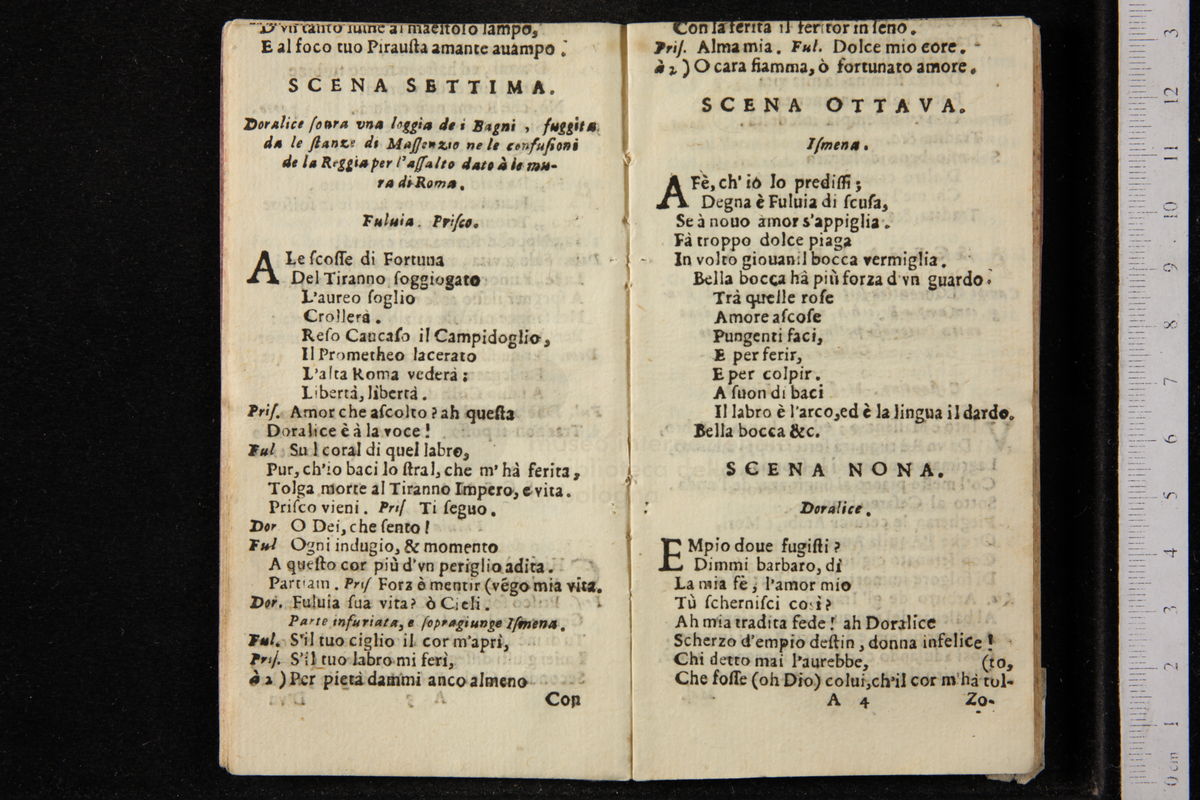 D'vn tanto lume al maestoso lampo,
E al foco tuo Pirauſta amante auampo.
SCENA SETTIMA.
Doralice ſoura vna loggia de i Bagni, fuggita
da le ſtanze di Maſſenzio ne le confuſioni
de la Reggia per l'aſſalto dato à le mu-
ra di Roma.
Fuluia. Priſco.
A Le ſcoſſe di Fortuna
Del Tiranno ſoggiogato
L'aureo ſoglio
Crollerà.
Reſo Caucaſo il Campidoglio,
Il Prometheo lacerato
L'alta Roma vederà:
Libertà, libertà.
Priſ. Amor che aſcolto? ah queſta
Doralice è à la voce!
Ful Su l coral di quel labro,
Pur, ch'io baci lo ſtral, che m'hà ferita,
Tolga morte al Tiranno Impero, e vita.
Priſco vieni. Priſ Ti ſeguo.
Dor O Dei, che ſento!
Ful Ogni indugio, & momento
A queſto cor più d'vn periglio adita.
Partiam. Priſ Forz ò mentir (vẽgo mia vita.
Dor. Fuluia ſua vita? ò Cieli.
Parte infuriata, e ſopragiunge Iſmena.
Ful. S'il tuo ciglio il cor m'aprì,
Priſ. S'il tuo labro mi ferì,
à 2) Per pietà dammi anco almeno
Con
Con la ferita il feritor in ſeno.
Priſ. Alma mia. Ful. Dolce mio core.
à 2) O cara fiamma, ò fortunato amore.
SCENA OTTAVA.
Iſmena.
A Fè, ch'iò lo prediſſi;
Degna è Fuluia di ſcuſa,
Se à nouo amor s'appiglia.
Fà troppo dolce piaga
In volto giouanil bocca vermiglia.
Bella bocca hà più forza d'vn guardo.
Trà quelle roſe
Amore aſcoſe
Pungenti faci,
E per ferir,
E per colpir.
A ſuon di baci
Il labro è l'arco, ed è la lingua il dardo.
Bella bocca &c.
SCENA NONA.
Doralice.
EMpio doue fugiſti?
Dimmi barbaro, dì
La mia fè, l'amor mio
Tù ſcherniſci così?
Ah mia tradita fede! ah Doralice
Scherzo d'empio deſtin, donna infelice!
Chi detto mai l'aurebbe, (to,
Che foſſe (oh Dio) colui, ch'il cor m'hà tol-
A 4 Zo-
0 cm 1 2 3 4 5 6 7 8 9 10 11 12 3